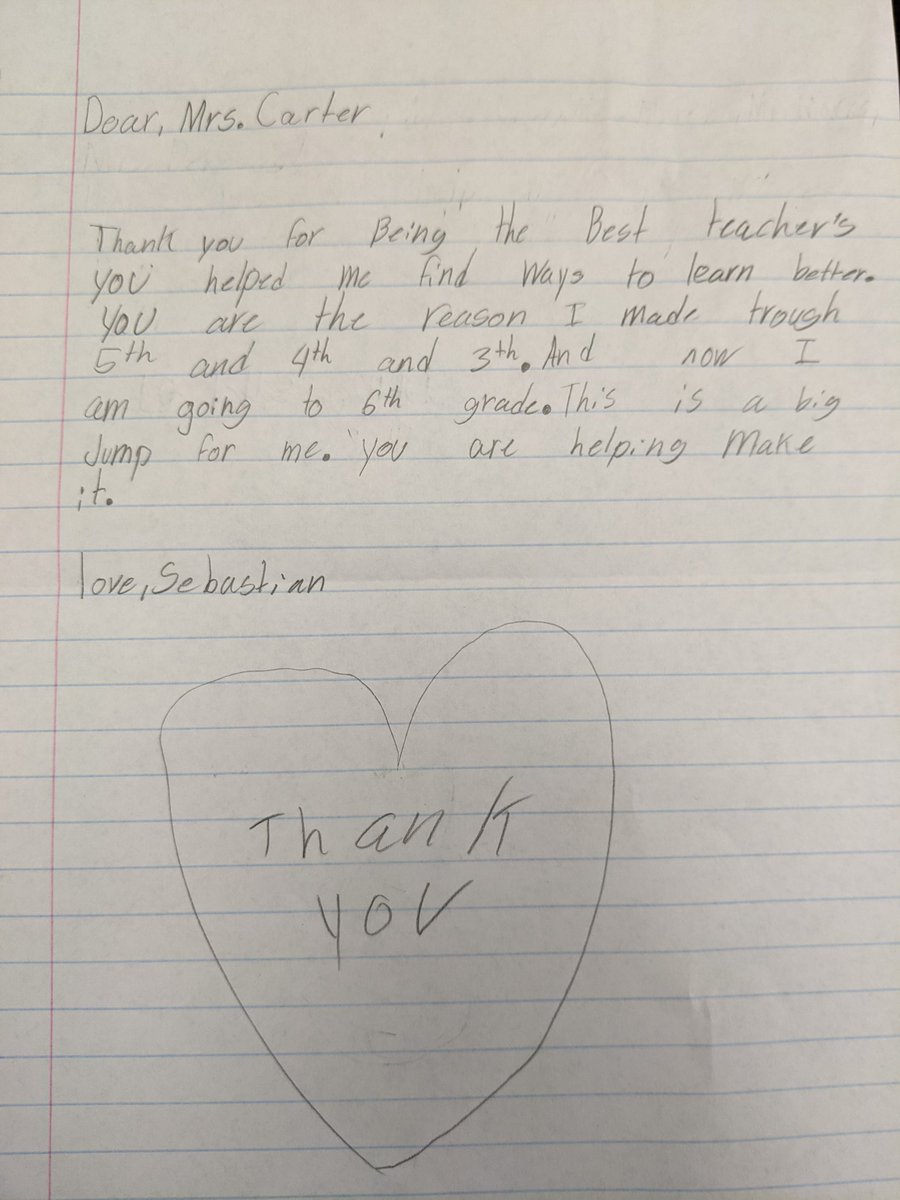 Dear, Mrs. Carter
Thank you for Being the Best teacher's
you helped me find ways to learn better.
you are the reason I made trough
5th and 4th and 3th. And now I
am going to 6th grade. This is a big
Jump for me. you are helping Make
it.
love, Sebastian
Thank
you